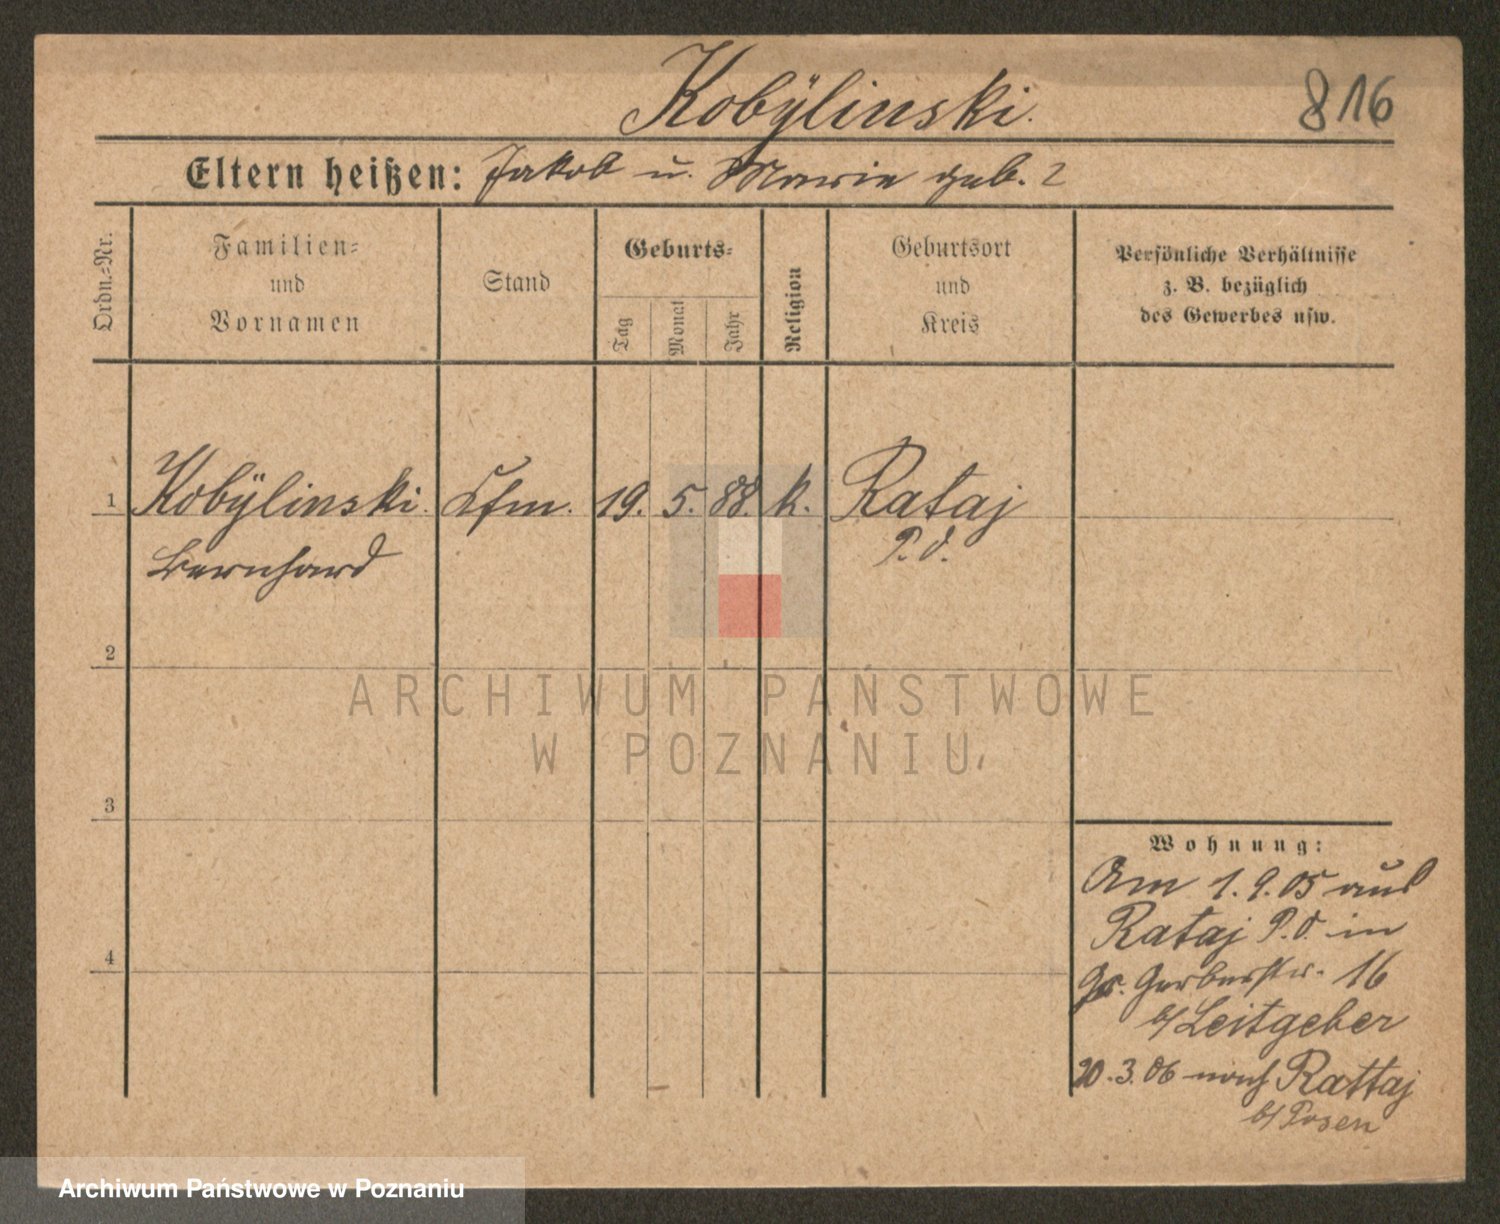 Kobÿlinski.
816
Eltern heißen: Jakob u. Marie geb. ?
Ordn.=Nr.
Familien=
und
Vornamen
Stand
Geburts=
Tag
Monat
Jahr
Religion
Geburtsort
und
Kreis
Persönliche Verhältnisse
z. B. bezüglich
des Gewerbes usw.
1 Kobÿlinski. Lfm. 19. 5. 88. k. Rataj
Bernhard P. O.
2
ARCHIWUM PAŃSTWOWE
W POZNANIU
3
Wohnung:
Am 1. 9. 05 aus
Rataj P. O. in
4
Gr. Gerberstr. 16
b/ Leitgeber
20. 3. 06 nach Rattaj
b/ Posen
Archiwum Państwowe w Poznaniu